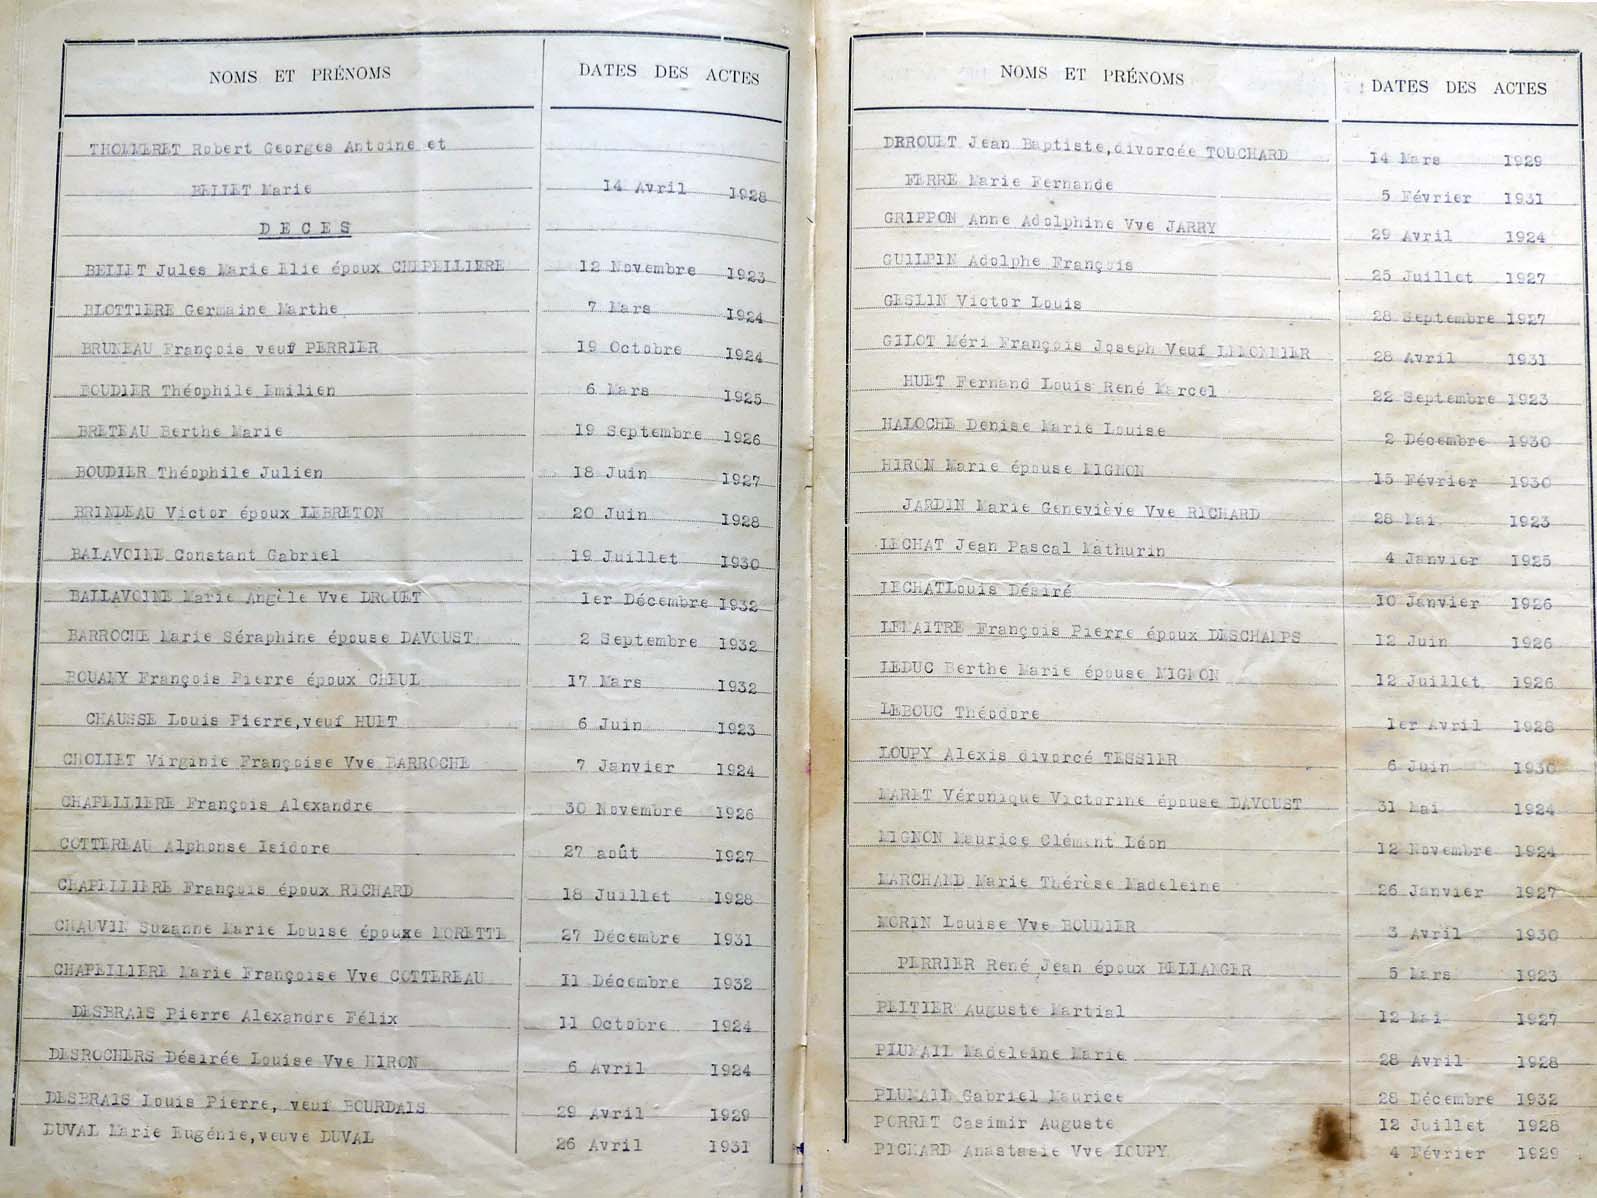 NOMS ET PRÉNOMS DATES DES ACTES
THOMMERET Robert Georges Antoine et
BELLET Marie 14 Avril 1928
DECES
BELLET Jules Marie Elie époux CHAPELLIERE 12 Novembre 1923
BLOTTIERE Germaine Marthe 7 Mars 1924
BRUNEAU François veuf PERRIER 19 Octobre 1924
BOUDIER Théophile Emilien 6 Mars 1925
BRETEAU Berthe Marie 19 Septembre 1926
BOUDIER Théophile Julien 18 Juin 1927
BRINDEAU Victor époux LEBRETON 20 Juin 1928
BALAVOINE Constant Gabriel 19 Juillet 1930
BALLAVOINE Marie Angèle Vve DROUET 1er Décembre 1932
BARROCHE Marie Séraphine épouse DAVOUST 2 Septembre 1932
BOUAMY François Pierre époux CHEUL 17 Mars 1932
CHAUSSE Louis Pierre, veuf HUET 6 Juin 1923
CHOLLET Virginie Françoise Vve BARROCHE 7 Janvier 1924
CHAPELLIERE François Alexandre 30 Novembre 1926
COTTEREAU Alphonse Isidore 27 août 1927
CHAPELLIERE François époux RICHARD 18 Juillet 1928
CHAUVIN Suzanne Marie Louise épouxe MORETTE 27 Décembre 1931
CHAPELLIERE Marie Françoise Vve COTTEREAU 11 Décembre 1932
DESBRAIS Pierre Alexandre Félix 11 Octobre 1924
DESROCHERS Désirée Louise Vve HIRON 6 Avril 1924
DESBRAIS Louis Pierre, veuf BOURDAIS 29 Avril 1929
DUVAL Marie Eugénie, veuve DUVAL 26 Avril 1931
NOMS ET PRÉNOMS DATES DES ACTES
DEROUET Jean Baptiste, divorcée TOUCHARD 14 Mars 1929
FERRE Marie Fernande 5 Février 1931
GRIPPON Anne Adolphine Vve JARRY 29 Avril 1924
GUILPIN Adolphe François 25 Juillet 1927
GESLIN Victor Louis 28 Septembre 1927
GILOT Méri François Joseph Veuf LEMONNIER 28 Avril 1931
HUET Fernand Louis René Marcel 22 Septembre 1923
HALOCHE Denise Marie Louise 2 Décembre 1930
HIRON Marie épouse MIGNON 15 Février 1930
JARDIN Marie Geneviève Vve RICHARD 28 Mai 1923
LECHAT Jean Pascal Mathurin 4 Janvier 1925
LECHATLouis Désiré 10 Janvier 1926
LEMAITRE François Pierre époux DESCHAMPS 12 Juin 1926
LEDUC Berthe Marie épouse MIGNON 12 Juillet 1926
LEBOUC Théodore 1er Avril 1928
LOUPY Alexis divorcé TESSIER 6 Juin 1930
MARET Véronique Victorine épouse DAVOUST 31 Mai 1924
MIGNON Maurice Clément Léon 12 Novembre 1924
MARCHAND Marie Thérèse Madeleine 26 Janvier 1927
MORIN Louise Vve BOUDIER 3 Avril 1930
PERRIER René Jean époux BELLANGER 5 Mars 1923
PELTIER Auguste Martial 12 Mai 1927
PLUMAIL Madeleine Marie 28 Avril 1928
PLUMAIL Gabriel Maurice 28 Décembre 1932
PORRET Casimir Auguste 12 Juillet 1928
PICHARD Anastasie Vve LOUPY 4 Février 1929